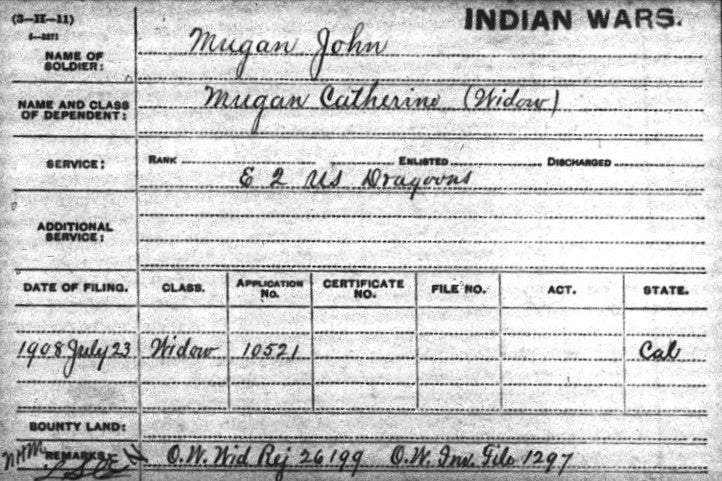 (3—II—11) INDIAN WARS.
NAME OF SOLDIER: Mugan John
NAME AND CLASS OF DEPENDENT: Mugan Catherine (Widow)
SERVICE: RANK ENLISTED DISCHARGED
E 2 US Dragoons
ADDITIONAL SERVICE:
DATE OF FILING. CLASS. APPLICATION NO. CERTIFICATE NO. FILE NO. ACT. STATE.
1908 July 23 Widow 10521 Cal
BOUNTY LAND:
REMARKS: O.W. Wid Rej 26199 O.W. Inv. File 1297